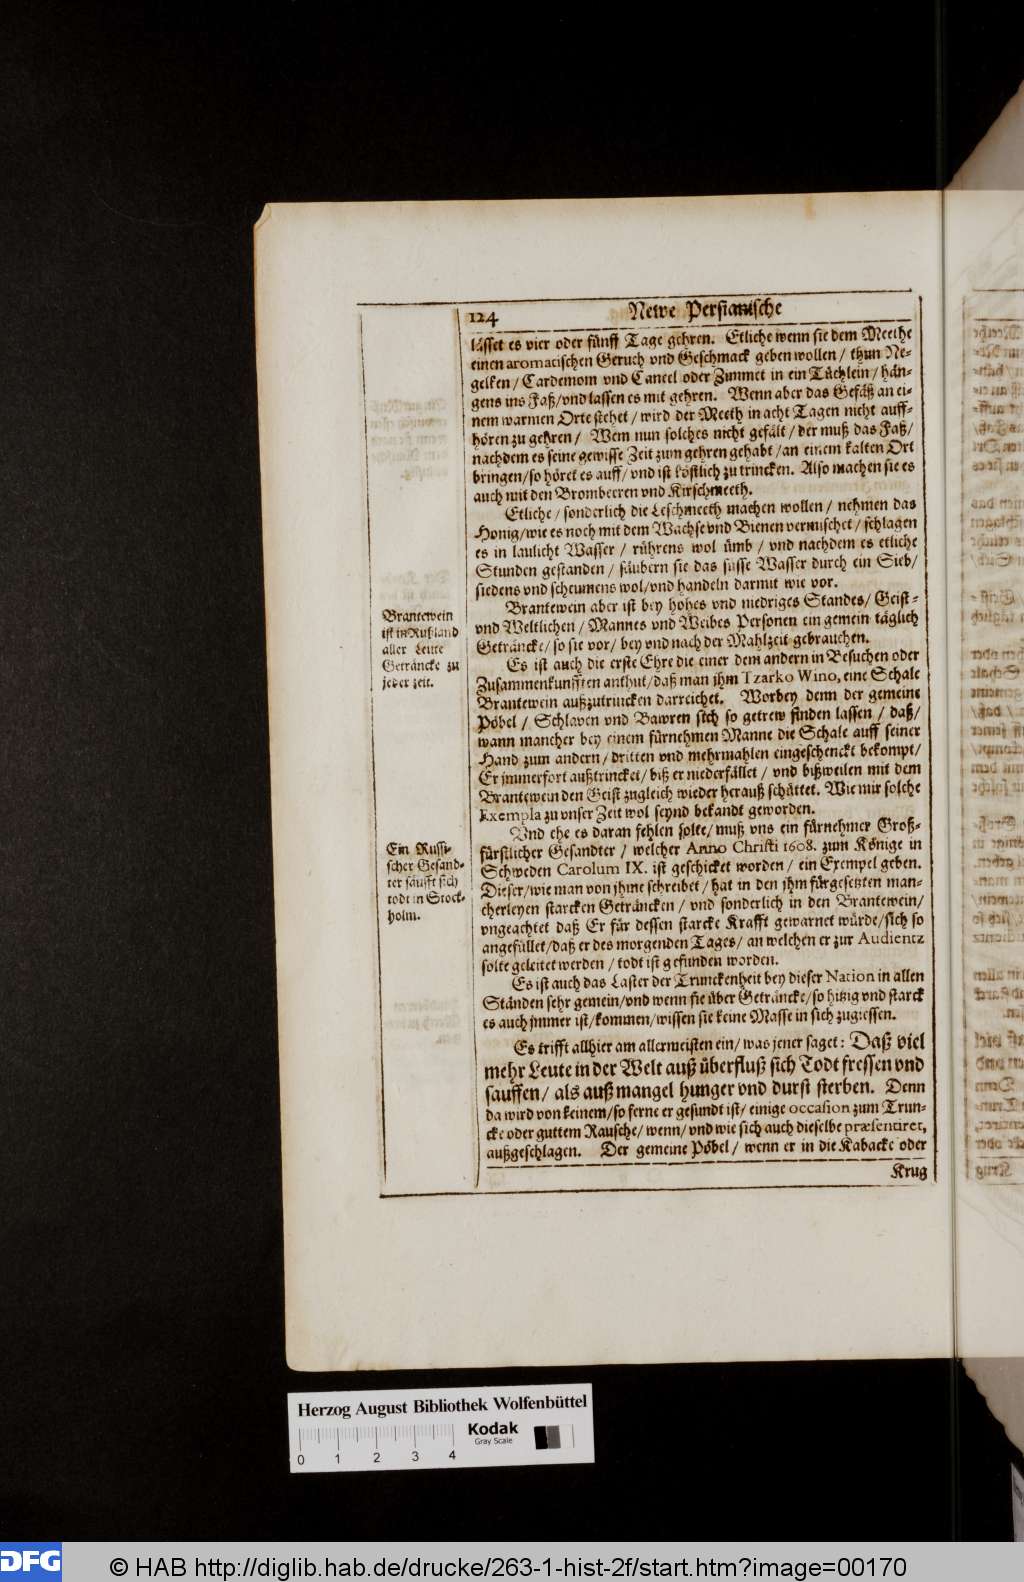 124 Newe Persianische
lässet es vier oder fünff Tage gehren. Etliche wenn sie dem Meethe
einen aromatischen Geruch vnd Geschmack geben wollen / thun Ne-
gelken / Cardemom vnd Caneel oder Zimmet in ein Tüchlein / hän-
gens ins Faß / vnd lassen es mit gehren. Wenn aber das Gefäß an ei-
nem warmen Orte stehet / wird der Meeth in acht Tagen nicht auff-
hören zu gehren / Wem nun solches nicht gefält / der muß das Faß /
nachdem es seine gewisse Zeit zum gehren gehabt / an einem kalten Ort
bringen / so höret es auff / vnd ist köstlich zu trincken. Also machen sie es
auch mit den Brombeeren vnd Kirschmeeth.
Etliche / sonderlich die Leschmeeth machen wollen / nehmen das
Honig / wie es noch mit dem Wachse vnd Bienen vermischet / schlagen
es in laulicht Wasser / rührens wol ümb / vnd nachdem es etliche
Stunden gestanden / säubern sie das süsse Wasser durch ein Sieb /
siedens vnd scheumens wol / vnd handeln darmit wie vor.
Brantewein
ist in Rußland
aller Leute
Geträncke zu
jeder zeit.
Brantewein aber ist bey hohes vnd niedriges Standes / Geist-
vnd Weltlichen / Mannes vnd Weibes Personen ein gemein täglich
Geträncke / so sie vor / bey vnd nach der Mahlzeit gebrauchen.
Es ist auch die erste Ehre die einer dem andern in Besuchen oder
Zusammenkunfften anthut / daß man jhm Tzarko Wino, eine Schale
Brantewein außzutrincken darreichet. Worbey denn der gemeine
Pöbel / Schlaven vnd Bawren sich so getrew finden lassen / daß /
wann mancher bey einem fürnehmen Manne die Schale auff seiner
Hand zum andern / dritten vnd mehrmahlen eingeschenckt bekompt /
Er jmmerfort außtrincket / biß er niederfället / vnd bißweilen mit dem
Brantewein den Geist zugleich wieder herauß schüttet. Wie mir solche
Exempla zu vnser Zeit wol seynd bekandt geworden.
Ein Russi-
scher Gesand-
ter säufft sich
todt in Stock-
holm.
Vnd ehe es daran fehlen solte / muß vns ein fürnehmer Groß-
fürstlicher Gesandter / welcher Anno Christi 1608. zum Könige in
Schweden Carolum IX. ist geschicket worden / ein Exempel geben.
Dieser / wie man von jhme schreibet / hat in den jhm fürgesetzten man-
cherleyen starcken Geträncken / vnd sonderlich in den Brantewein /
vngeachtet daß Er für dessen starcke Krafft gewarnet würde / sich so
angefüllet / daß er des morgenden Tages / an welchen er zur Audientz
solte geleitet werden / todt ist gefunden worden.
Es ist auch das Laster der Trunckenheit bey dieser Nation in allen
Ständen sehr gemein / vnd wenn sie über Geträncke / so hitzig vnd starck
es auch jmmer ist / kommen / wissen sie keine Masse in sich zugiessen.
Es trifft allhier am allermeisten ein / was jener saget: Daß viel
mehr Leute in der Welt auß überfluß sich Todt fressen vnd
sauffen / als auß mangel hunger vnd durst sterben. Denn
da wird von keinem / so ferne er gesundt ist / einige occasion zum Trun-
cke oder guttem Rausche / wenn / vnd wie sich auch dieselbe præsentiret,
außgeschlagen. Der gemeine Pöbel / wenn er in die Kabacke oder
Krug
Herzog August Bibliothek Wolfenbüttel
Kodak
Gray Scale
0 1 2 3 4
DFG © HAB http://diglib.hab.de/drucke/263-1-hist-2f/start.htm?image=00170